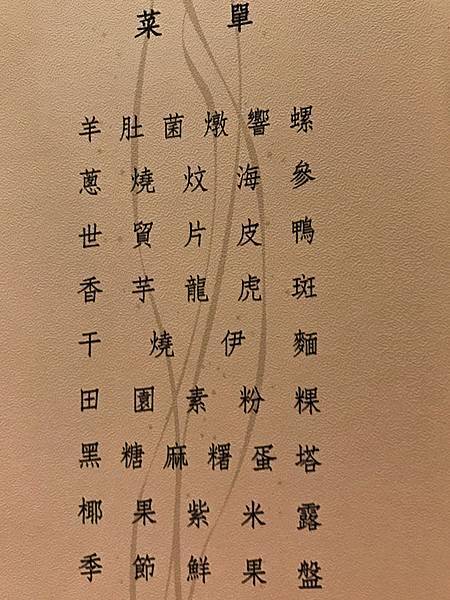 菜單
羊肚菌燉響螺
蔥燒炆海參
世貿片皮鴨
香芋龍虎斑
干燒伊麵
田園素粉粿
黑糖麻糬蛋塔
椰果紫米露
季節鮮果盤